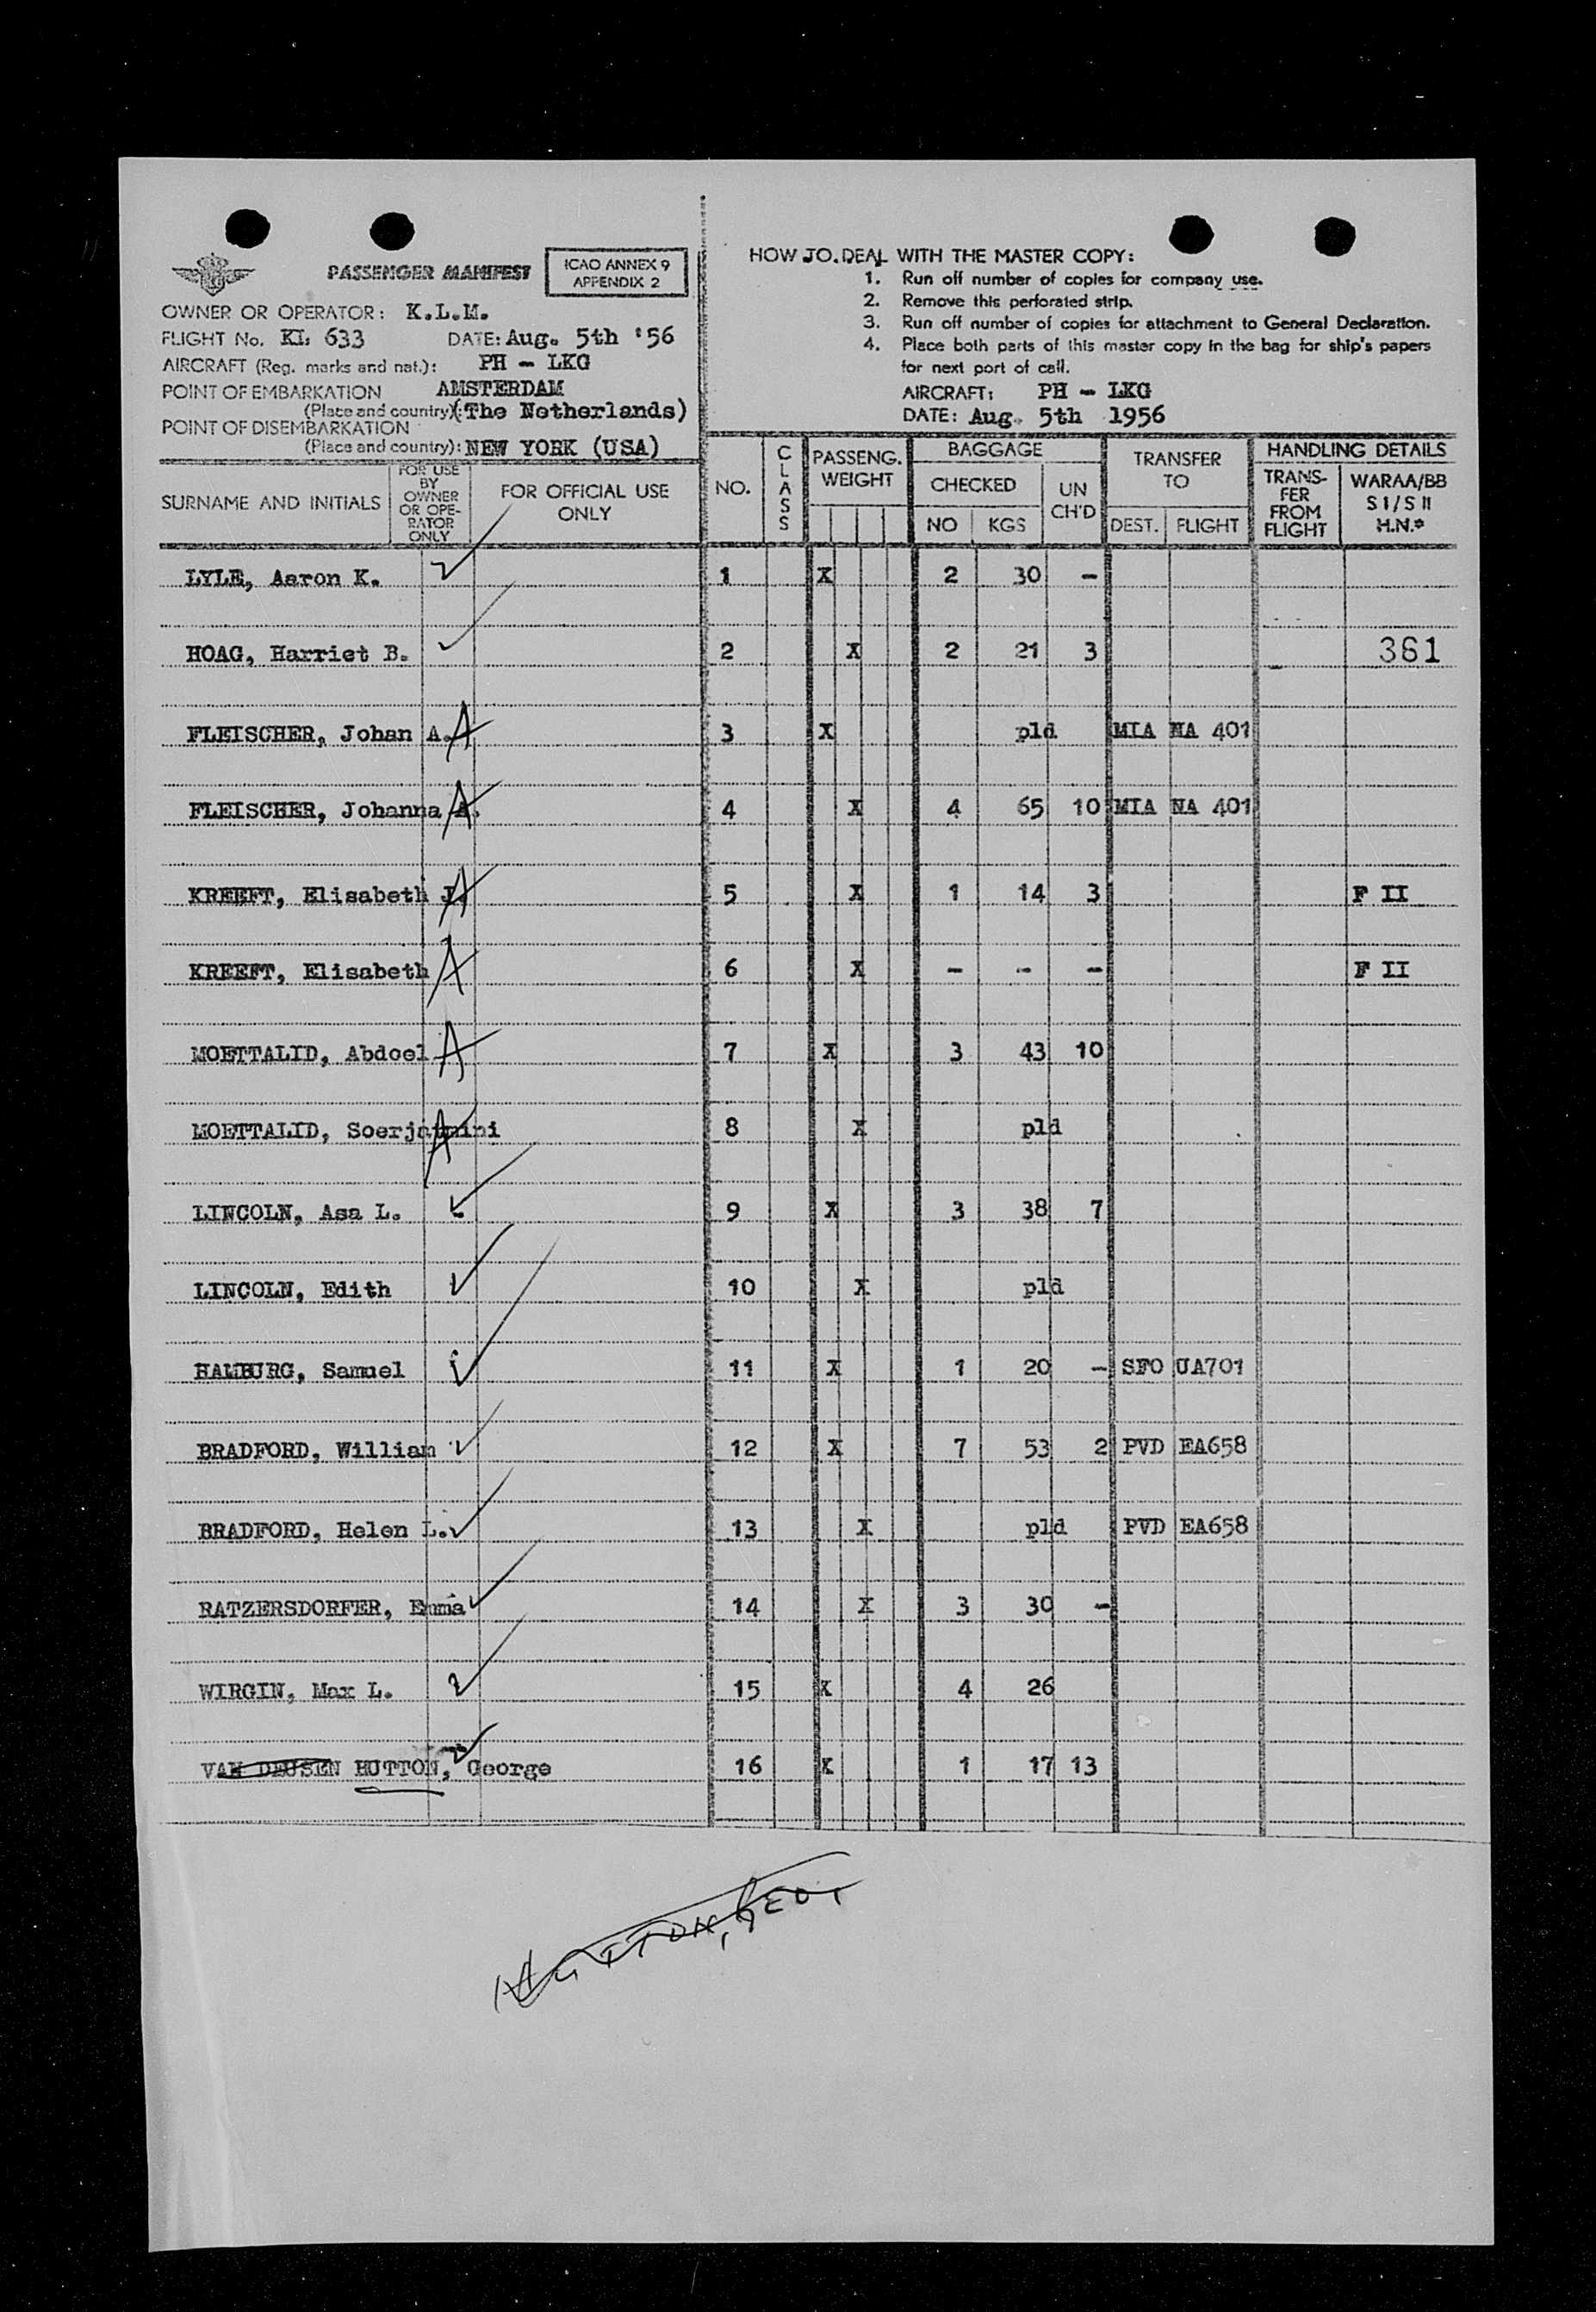 PASSENGER MANIFEST
ICAO ANNEX 9
APPENDIX 2
OWNER OR OPERATOR: K.L.M.
FLIGHT No. KL 633 DATE: Aug. 5th '56
AIRCRAFT (Reg. marks and nat.): PH - LKG
POINT OF EMBARKATION AMSTERDAM
(Place and country): (The Netherlands)
POINT OF DISEMBARKATION
(Place and country): NEW YORK (USA)
HOW TO DEAL WITH THE MASTER COPY:
1. Run off number of copies for company use.
2. Remove this perforated strip.
3. Run off number of copies for attachment to General Declaration.
4. Place both parts of this master copy in the bag for ship's papers
for next port of call.
AIRCRAFT: PH - LKG
DATE: Aug. 5th 1956
SURNAME AND INITIALS
FOR USE
BY
OWNER
OR OPE-
RATOR
ONLY
FOR OFFICIAL USE
ONLY
NO.
CLASS
PASSENG.
WEIGHT
BAGGAGE
CHECKED
NO KGS
UN
CH'D
TRANSFER
TO
DEST. FLIGHT
HANDLING DETAILS
TRANS-
FER
FROM
FLIGHT
WARAA/BB
S I/S II
H.N.*
LYLE, Aaron K. 1 X 2 30 -
HOAG, Harriet B. 2 X 2 21 3 361
FLEISCHER, Johan A. A 3 X pld MIA NA 401
FLEISCHER, Johanna A. A 4 X 4 65 10 MIA NA 401
KREEFT, Elisabeth J. A 5 X 1 14 3 F II
KREEFT, Elisabeth A 6 X - - - F II
MOETTALID, Abdoel A 7 X 3 43 10
MOETTALID, A 8 X pld
LINCOLN, Asa L. 9 X 3 38 7
LINCOLN, Edith 10 X pld
HAMBURG, Samuel 11 X 1 20 - SFO UA701
BRADFORD, William 12 X 7 53 2 PVD EA658
BRADFORD, Helen L. 13 X pld PVD EA658
RATZERSDORFER, Emma 14 X 3 30 -
WIRGIN, Max L. 15 X 4 26
VAN DEUSEN HUTTON, George 16 X 1 17 13
HUTTON, GEO.